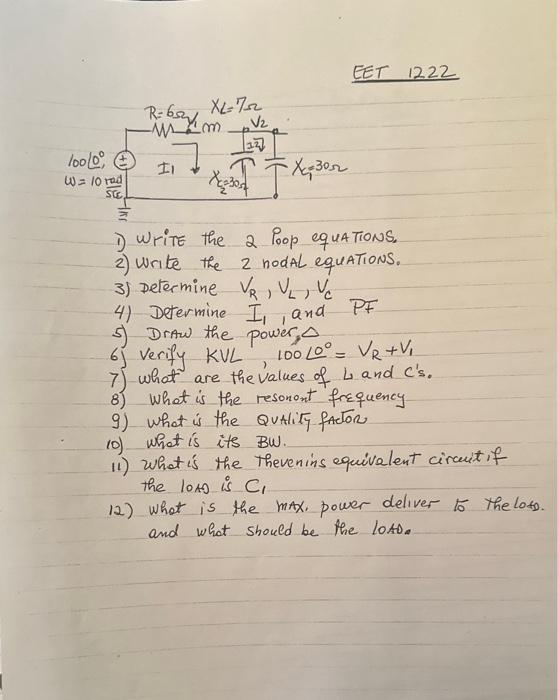 EET 1222
R=6Ω V1 XL=7Ω
m V2
100∠0° I1 I2 XC1=30Ω
ω=10 rad/sec XC2=30Ω
1) Write the 2 Poop equATIONS.
2) Write the 2 nodAL equATIONS.
3) Determine VR, VL, VC
4) Determine I1, and PF
5) DrAw the power △
6) Verify KVL, 100∠0° = VR + V1
7) what are the values of L and C's.
8) What is the resonont frequency
9) what is the QUALITY fActor
10) what is its BW.
11) What is the Thevenins equivalent circuit if
the loAD is C1
12) What is the mAx. power deliver to the loAD.
and what should be the loAD.